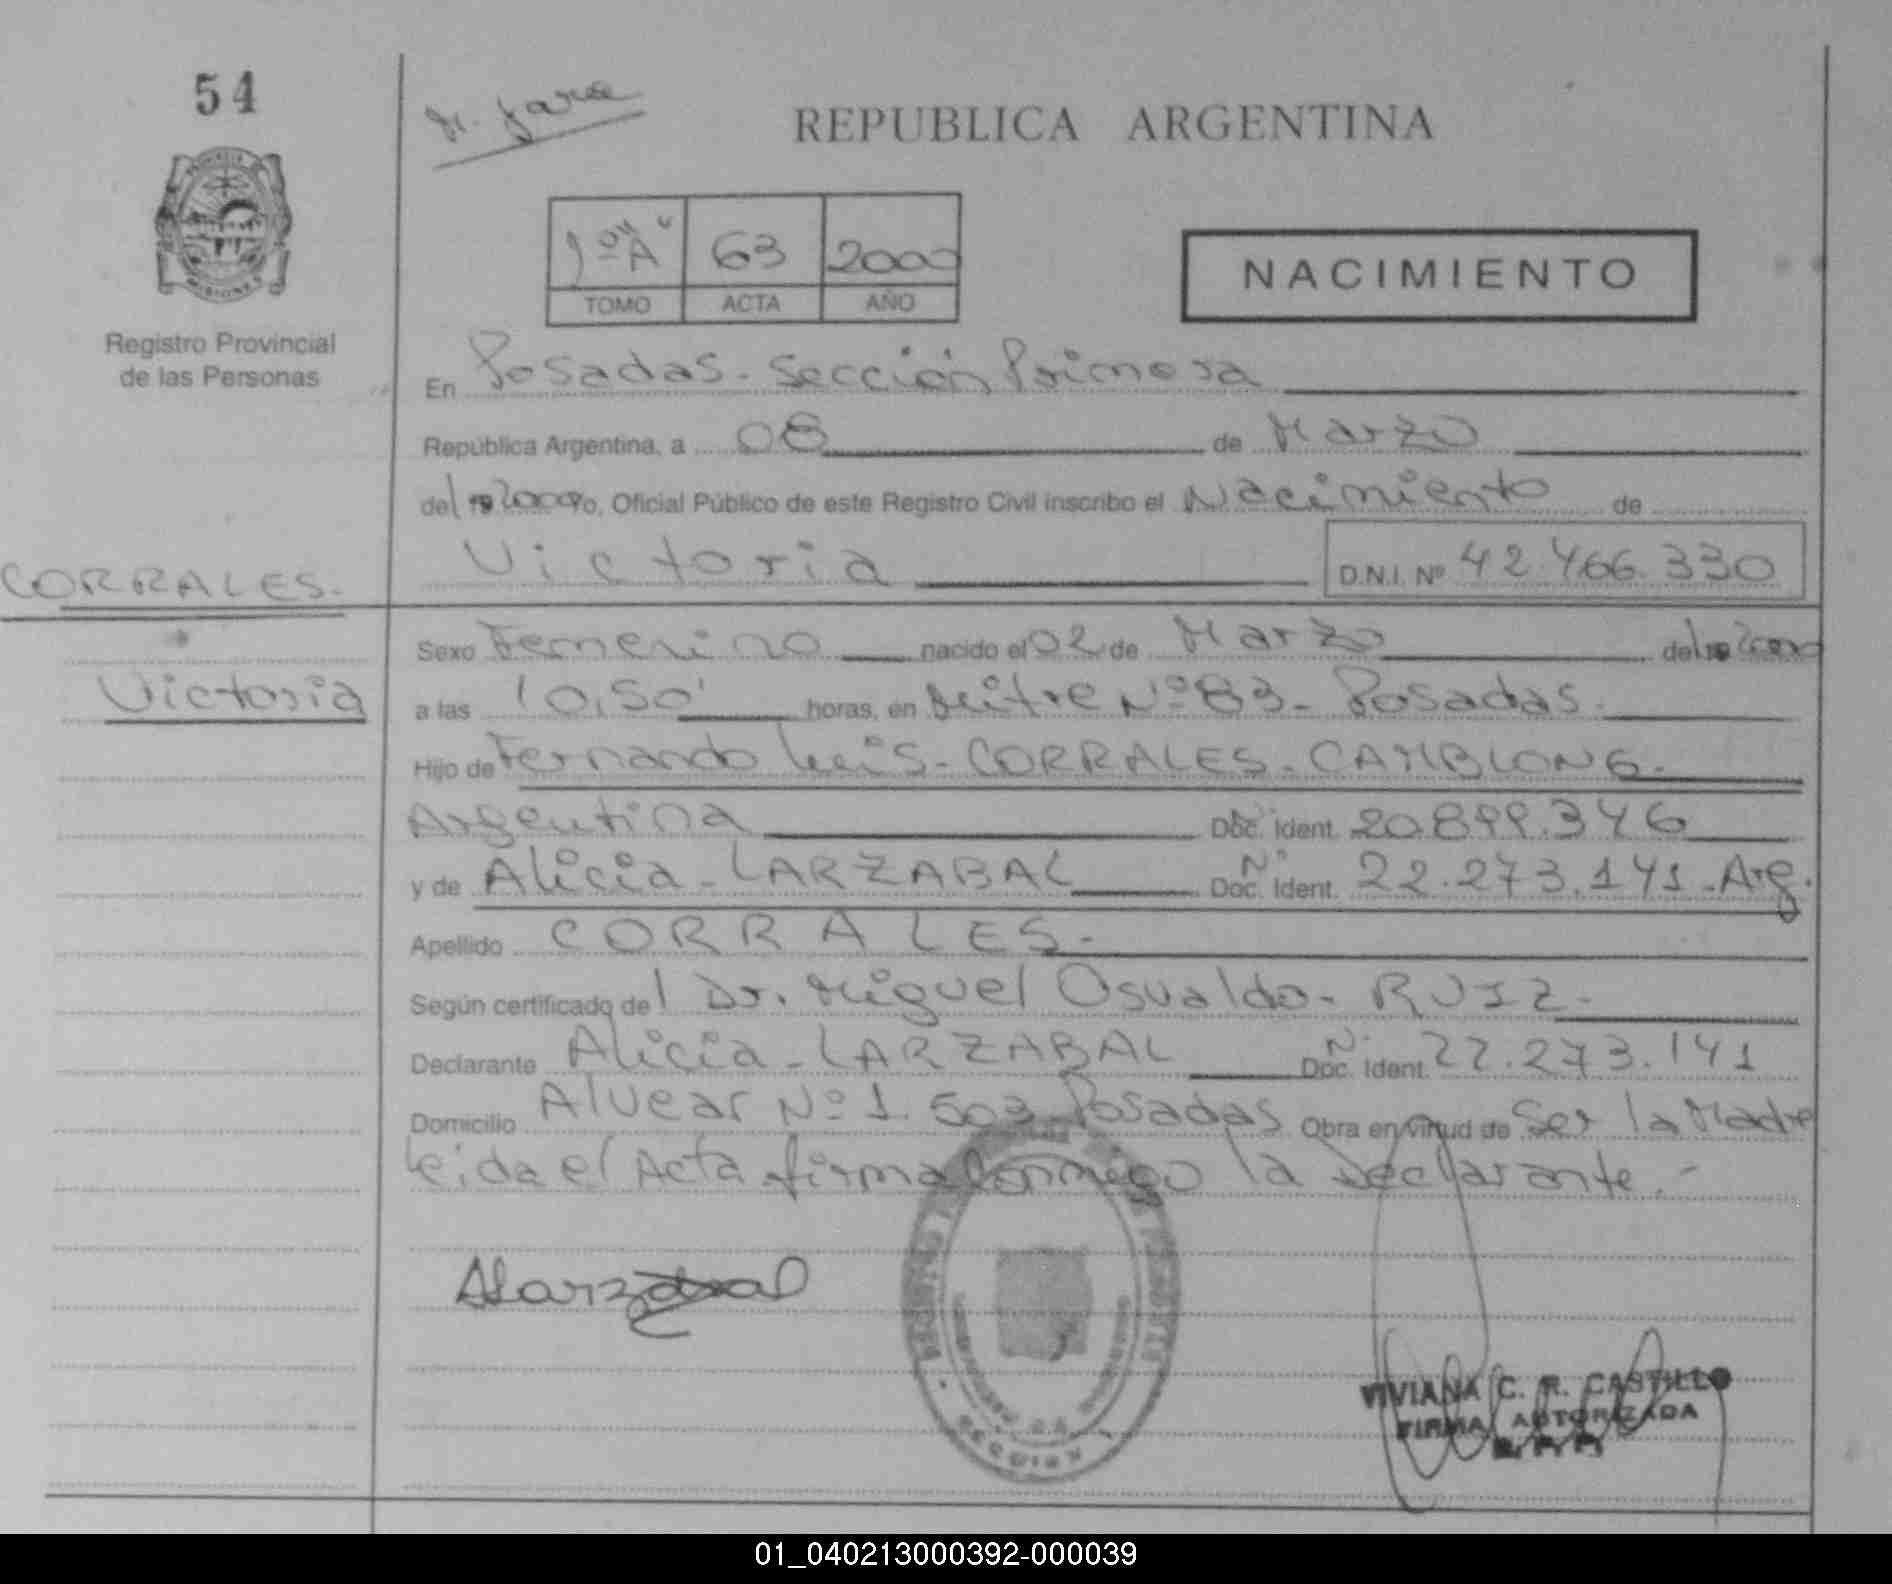 54
REPUBLICA ARGENTINA
MISIONES
1º "A" 63 2000
TOMO ACTA AÑO
NACIMIENTO
Registro Provincial
de las Personas
En Posadas - Sección Primera
República Argentina, a 08 de Marzo
del 2000 yo, Oficial Público de este Registro Civil inscribo el Nacimiento de
Victoria D.N.I. Nº 42.466.330
CORRALES.
Victoria
Sexo Femenino nacido el 02 de Marzo del 2000
a las 10,50' horas, en Mitre Nº 83 - Posadas.
Hijo de Fernando Luis - CORRALES - CAMBLONG.
Argentina Nº Doc. Ident. 20.899.346
y de Alicia - LARZABAL Nº Doc. Ident. 22.273.141 - Arg.
Apellido CORRALES.
Según certificado del Dr. Miguel Osvaldo - RUIZ -
Declarante Alicia - LARZABAL Nº Doc. Ident. 22.273.141
Domicilio Alvear Nº 1.503 Posadas Obra en virtud de Ser la Madre
leida el Acta firma Conmigo la Declarante.-
ALarzabal
SECCION 1
VIVIANA C. R. CASTILLO
FIRMA AUTORIZADA
01_040213000392-000039